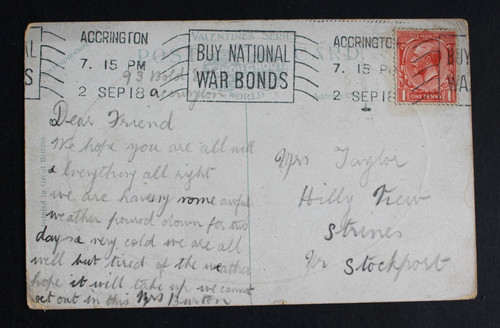 ACCRINGTON
7. 15 PM
2 SEP 18
BUY NATIONAL
WAR BONDS
ACCRINGTON
7. 15 PM
2 SEP 18
BUY
WA
DS
VALENTINE'S SERIE
POST CARD
WORLD
ONE PENNY
93
Accrington
Dear Friend
We hope you are all well
& Everything all right
we are having some awful
weather poured down for two
days & very cold we are all
well but tired of the weather
hope it will take up we cannot
get out in this Mrs Burton
Mrs Taylor
Hilly View
Strines
Nr Stockport
Printed in Great Britain